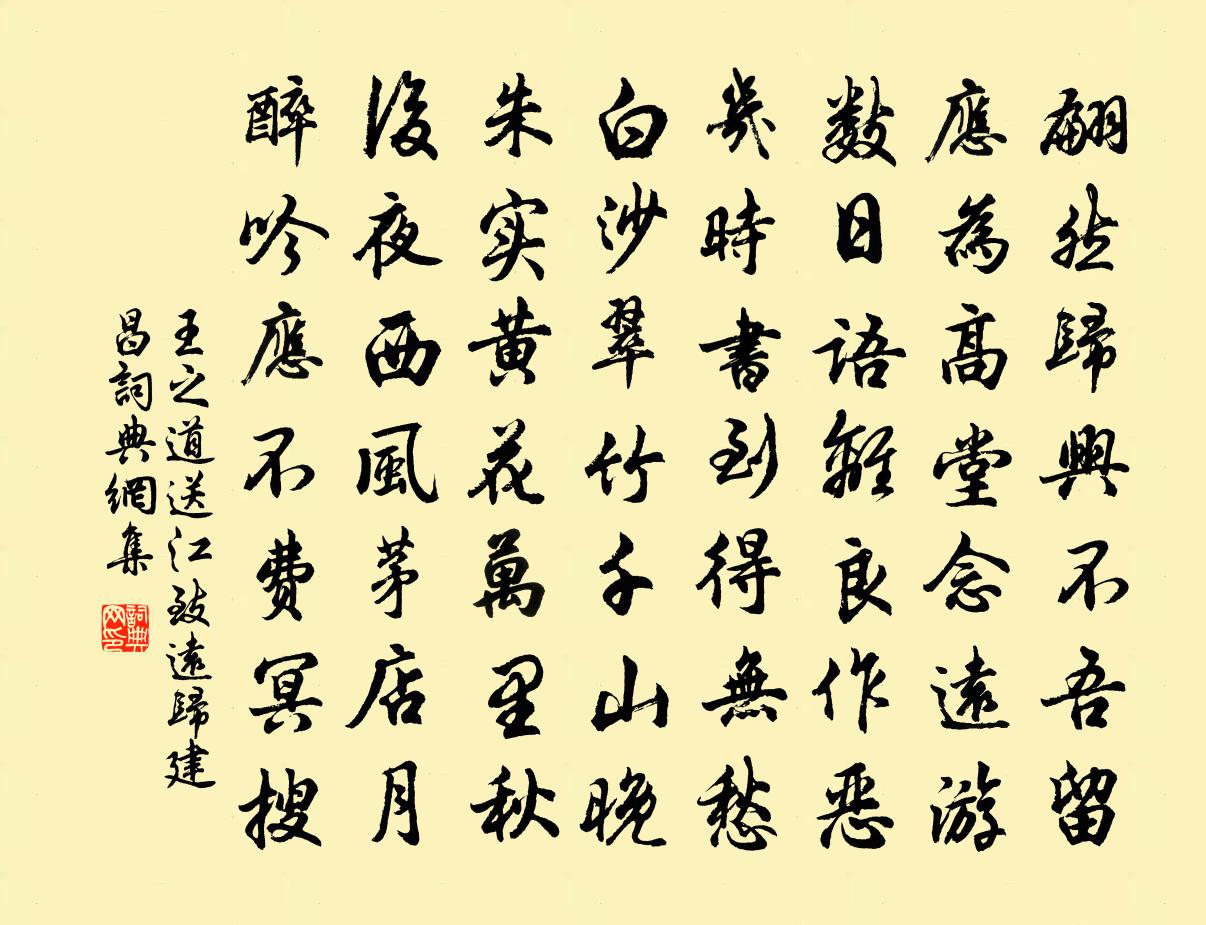 翩然歸興不吾留
應為高堂念遠游
數日語離良作惡
幾時書到得無愁
白沙翠竹千山晚
朱实黄花萬里秋
後夜西風茅店月
醉吟應不費冥搜
王之道送江致遠歸建
昌詞典網集
詞典
网印